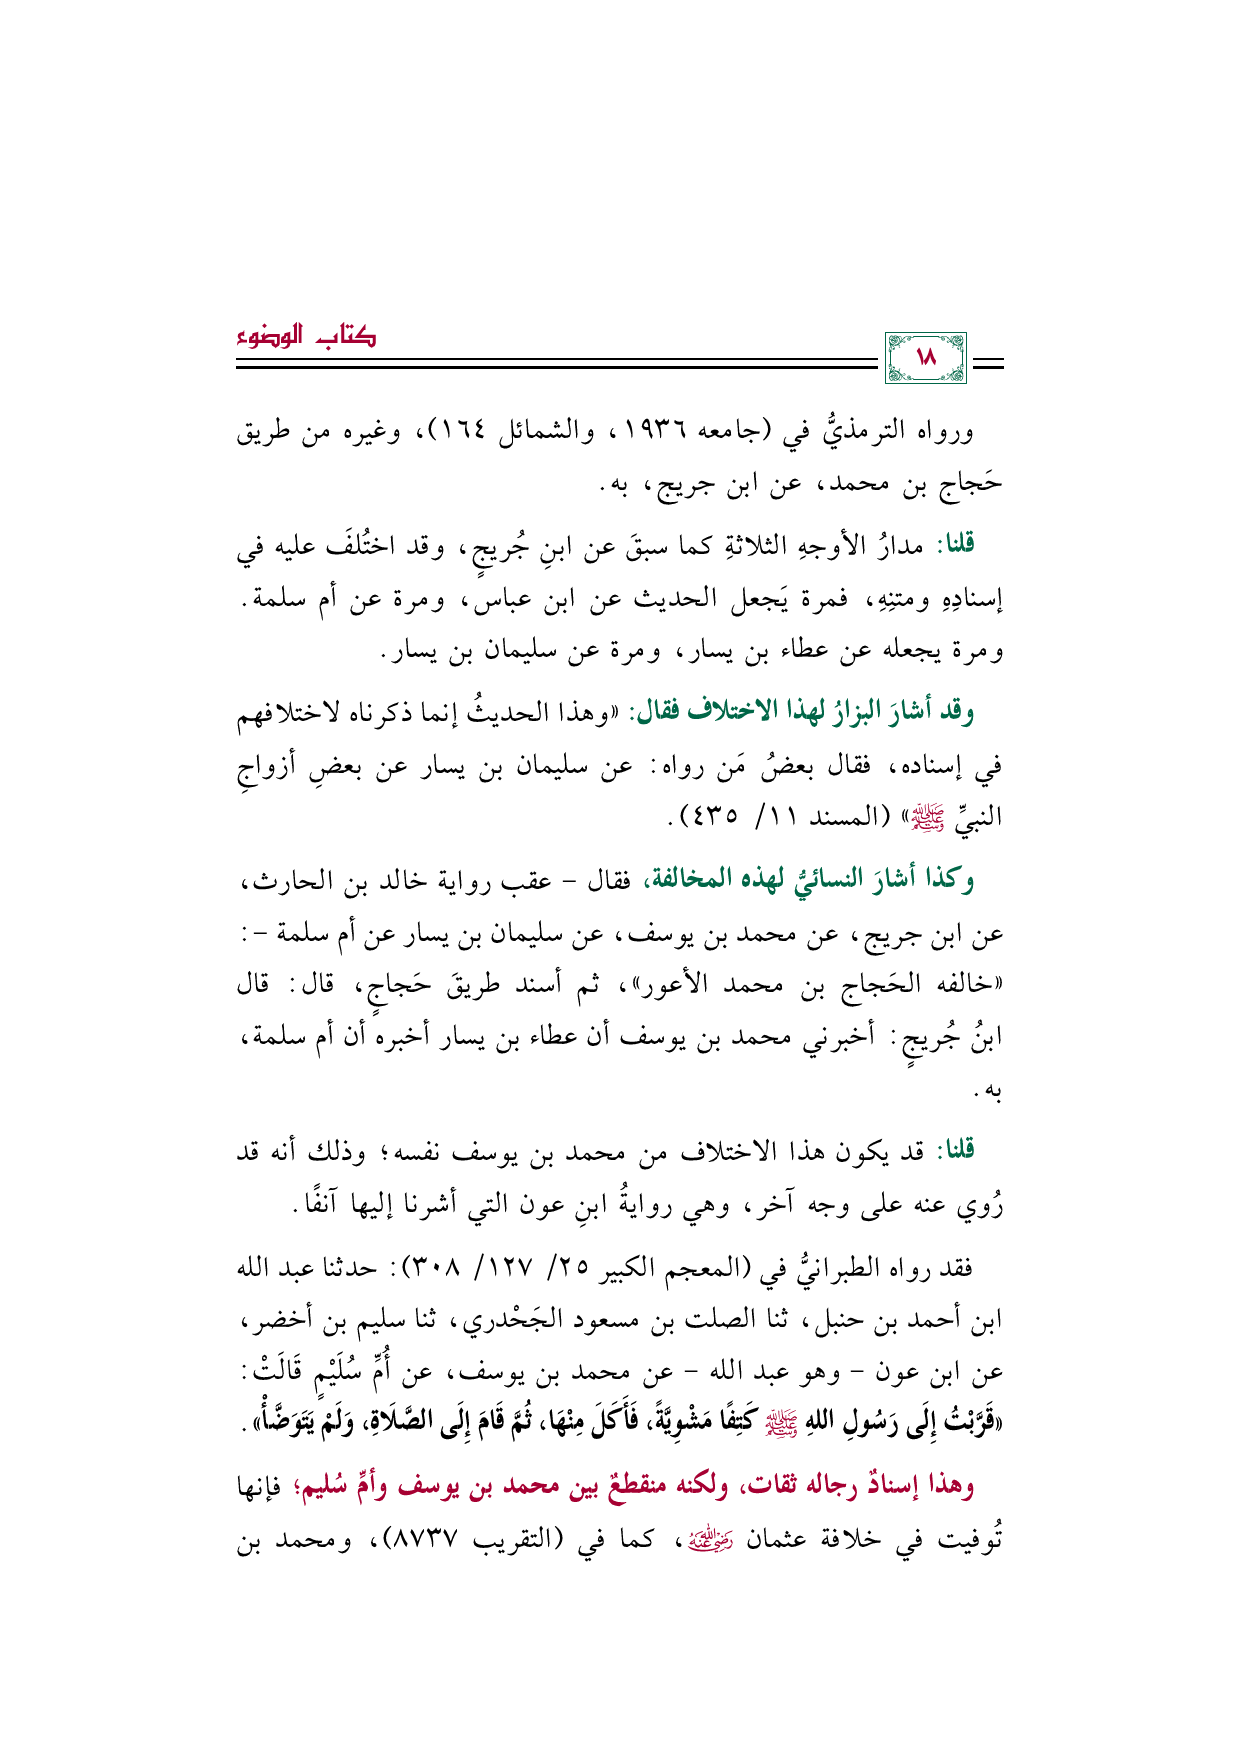 كتاب الوضوء
١٨
ورواه الترمذيُّ في (جامعه ١٩٣٦، والشمائل ١٦٤)، وغيره من طريق
حَجاج بن محمد، عن ابن جريج، به.
قلنا: مدارُ الأوجهِ الثلاثةِ كما سبقَ عن ابنِ جُريجٍ، وقد اختُلفَ عليه في
إسنادِهِ ومتنِهِ، فمرة يَجعل الحديث عن ابن عباس، ومرة عن أم سلمة.
ومرة يجعله عن عطاء بن يسار، ومرة عن سليمان بن يسار.
وقد أشارَ البزارُ لهذا الاختلاف فقال: «وهذا الحديثُ إنما ذكرناه لاختلافهم
في إسناده، فقال بعضُ مَن رواه: عن سليمان بن يسار عن بعضِ أزواجِ
النبيِّ ﷺ» (المسند ١١/ ٤٣٥).
وكذا أشارَ النسائيُّ لهذه المخالفة، فقال – عقب رواية خالد بن الحارث،
عن ابن جريج، عن محمد بن يوسف، عن سليمان بن يسار عن أم سلمة –:
«خالفه الحَجاج بن محمد الأعور»، ثم أسند طريقَ حَجاجٍ، قال: قال
ابنُ جُريجٍ: أخبرني محمد بن يوسف أن عطاء بن يسار أخبره أن أم سلمة،
به.
قلنا: قد يكون هذا الاختلاف من محمد بن يوسف نفسه؛ وذلك أنه قد
رُوي عنه على وجه آخر، وهي روايةُ ابنِ عون التي أشرنا إليها آنفًا.
فقد رواه الطبرانيُّ في (المعجم الكبير ٢٥/ ١٢٧/ ٣٠٨): حدثنا عبد الله
ابن أحمد بن حنبل، ثنا الصلت بن مسعود الجَحْدري، ثنا سليم بن أخضر،
عن ابن عون – وهو عبد الله – عن محمد بن يوسف، عن أُمِّ سُلَيْمٍ قَالَتْ:
«قَرَّبْتُ إِلَى رَسُولِ اللهِ ﷺ كَتِفًا مَشْوِيَّةً، فَأَكَلَ مِنْهَا، ثُمَّ قَامَ إِلَى الصَّلَاةِ، وَلَمْ يَتَوَضَّأْ».
وهذا إسنادٌ رجاله ثقات، ولكنه منقطعٌ بين محمد بن يوسف وأمِّ سُليم؛ فإنها
تُوفيت في خلافة عثمان رضي الله عنه، كما في (التقريب ٨٧٣٧)، ومحمد بن